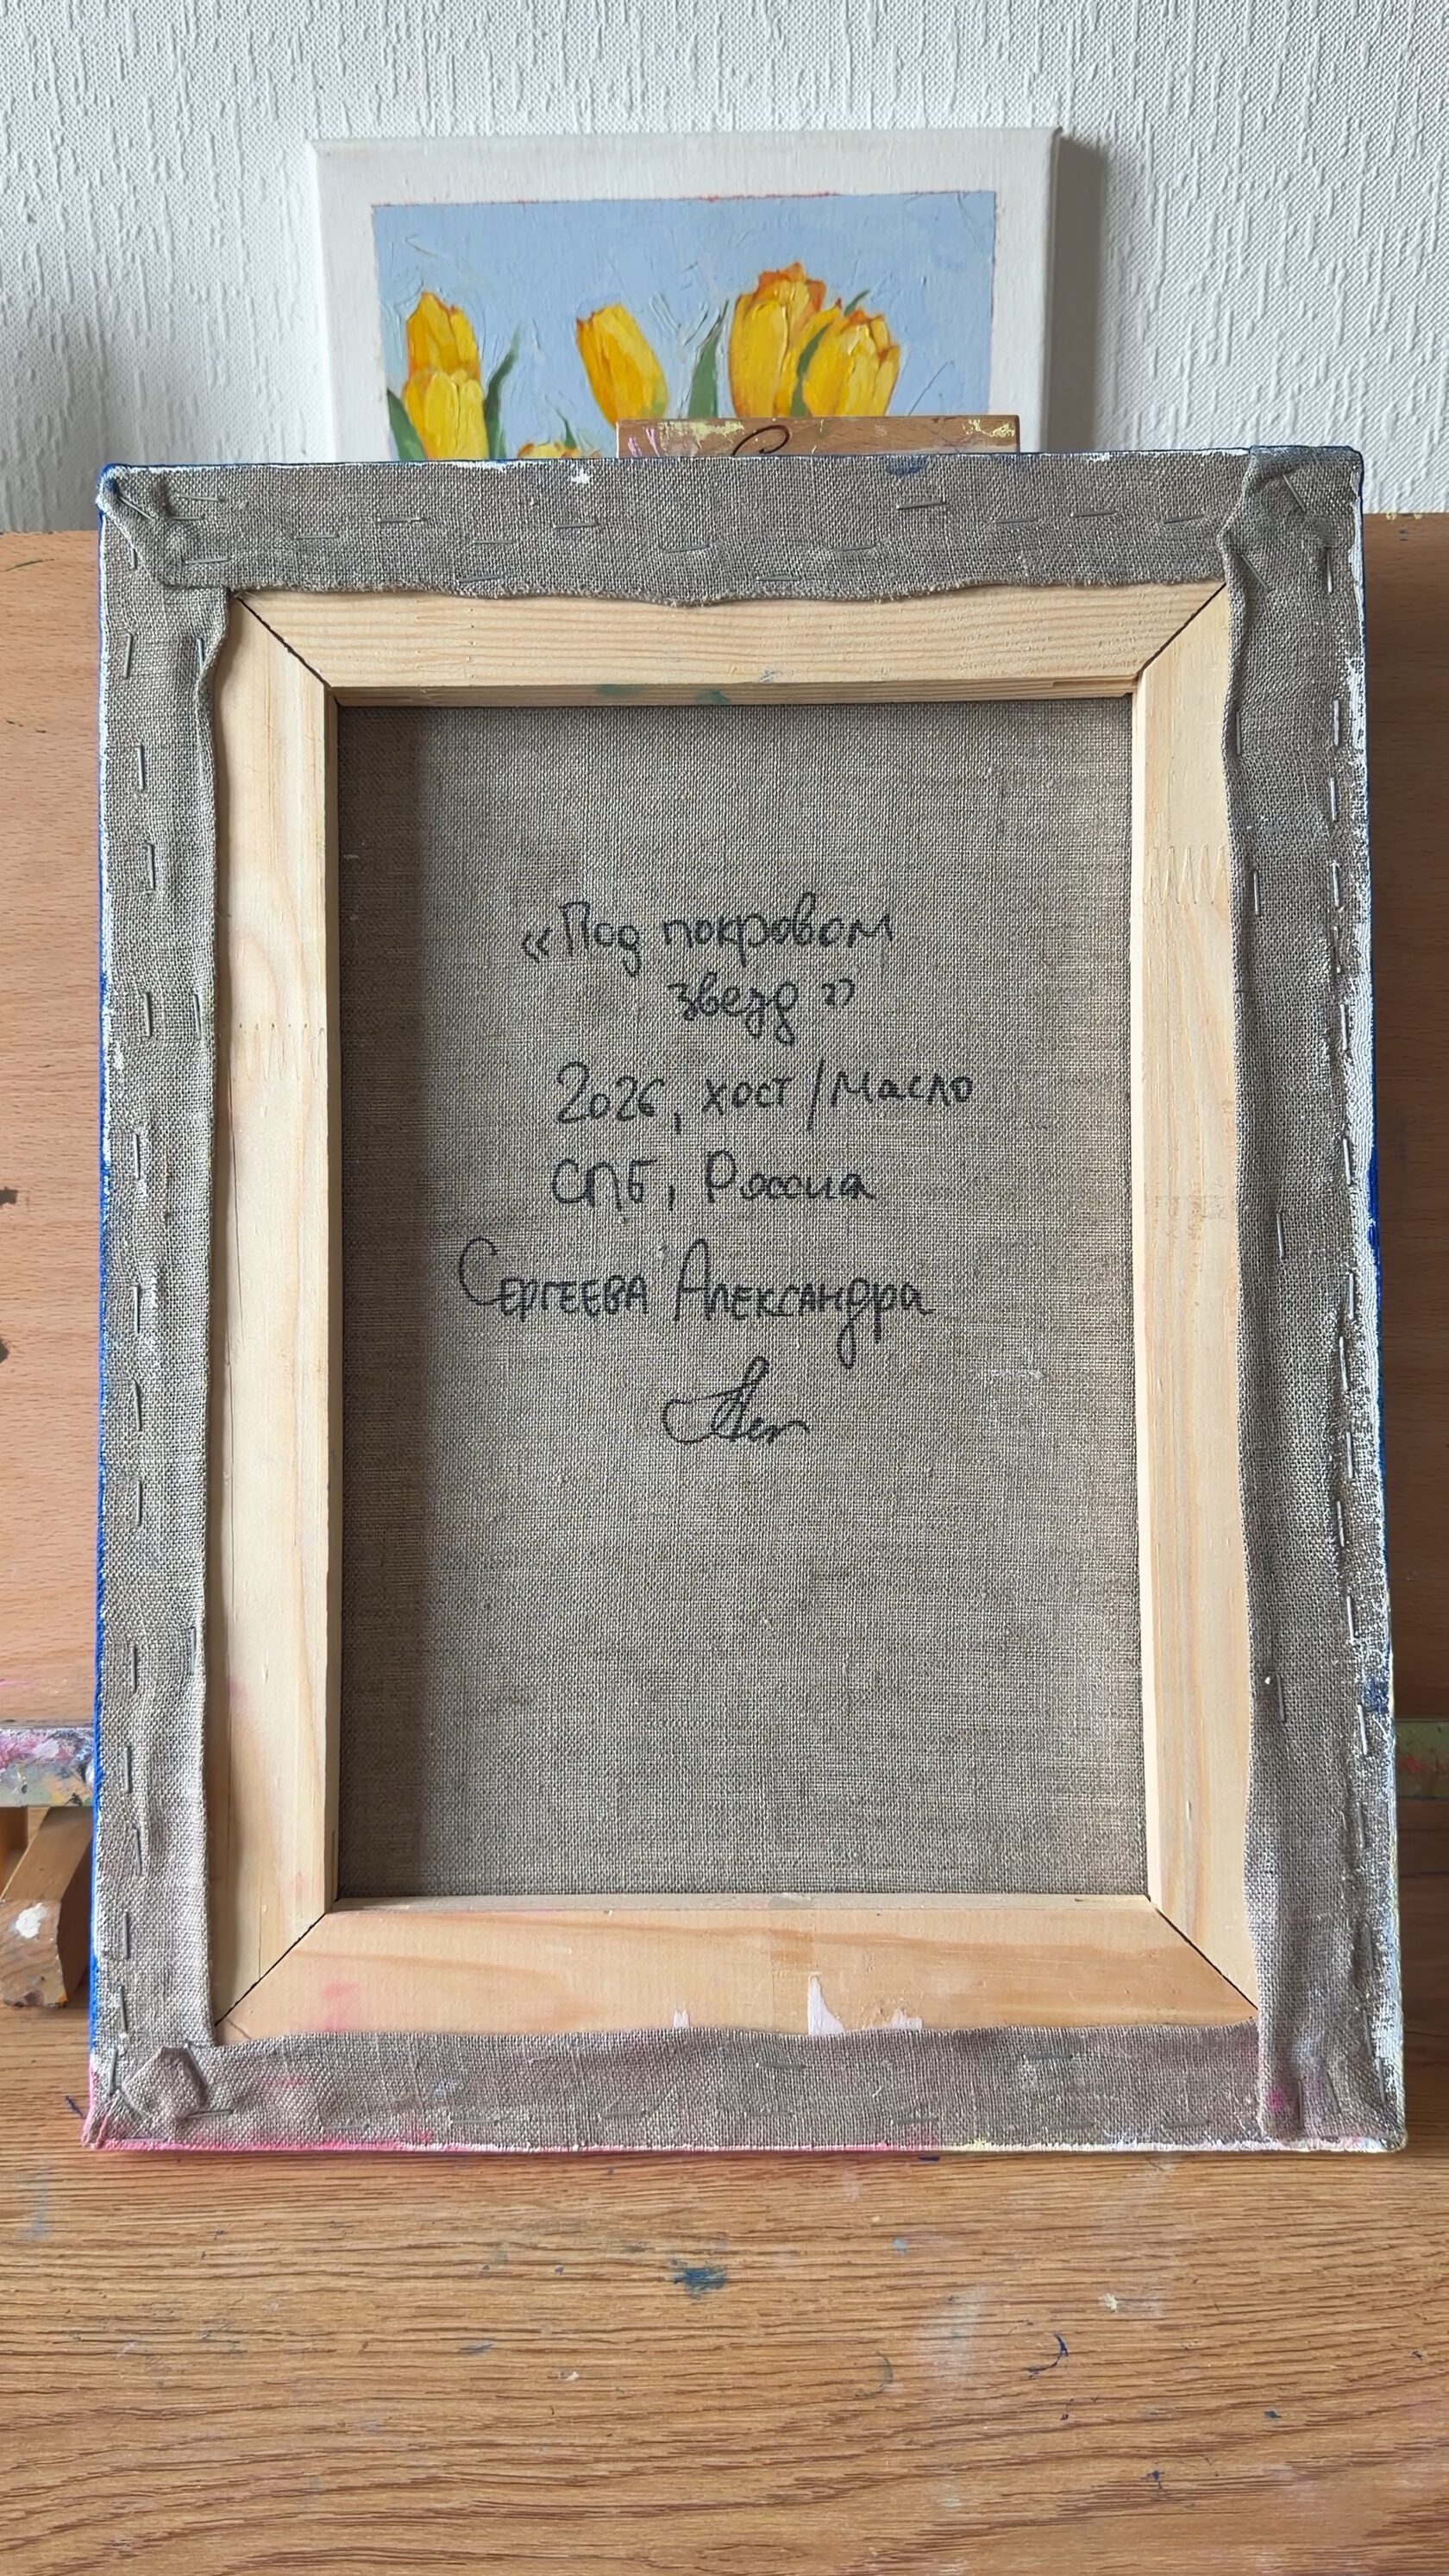 «Под покровом
звезд»
2026, холст/масло
СПБ, Россия
Сергеева Александра